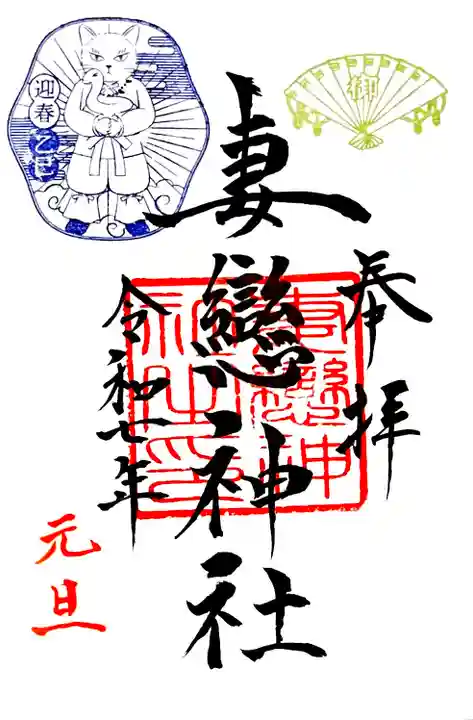 奉拝
妻戀神社
令和七年
元旦
迎春
乙巳
御
妻戀神社之印